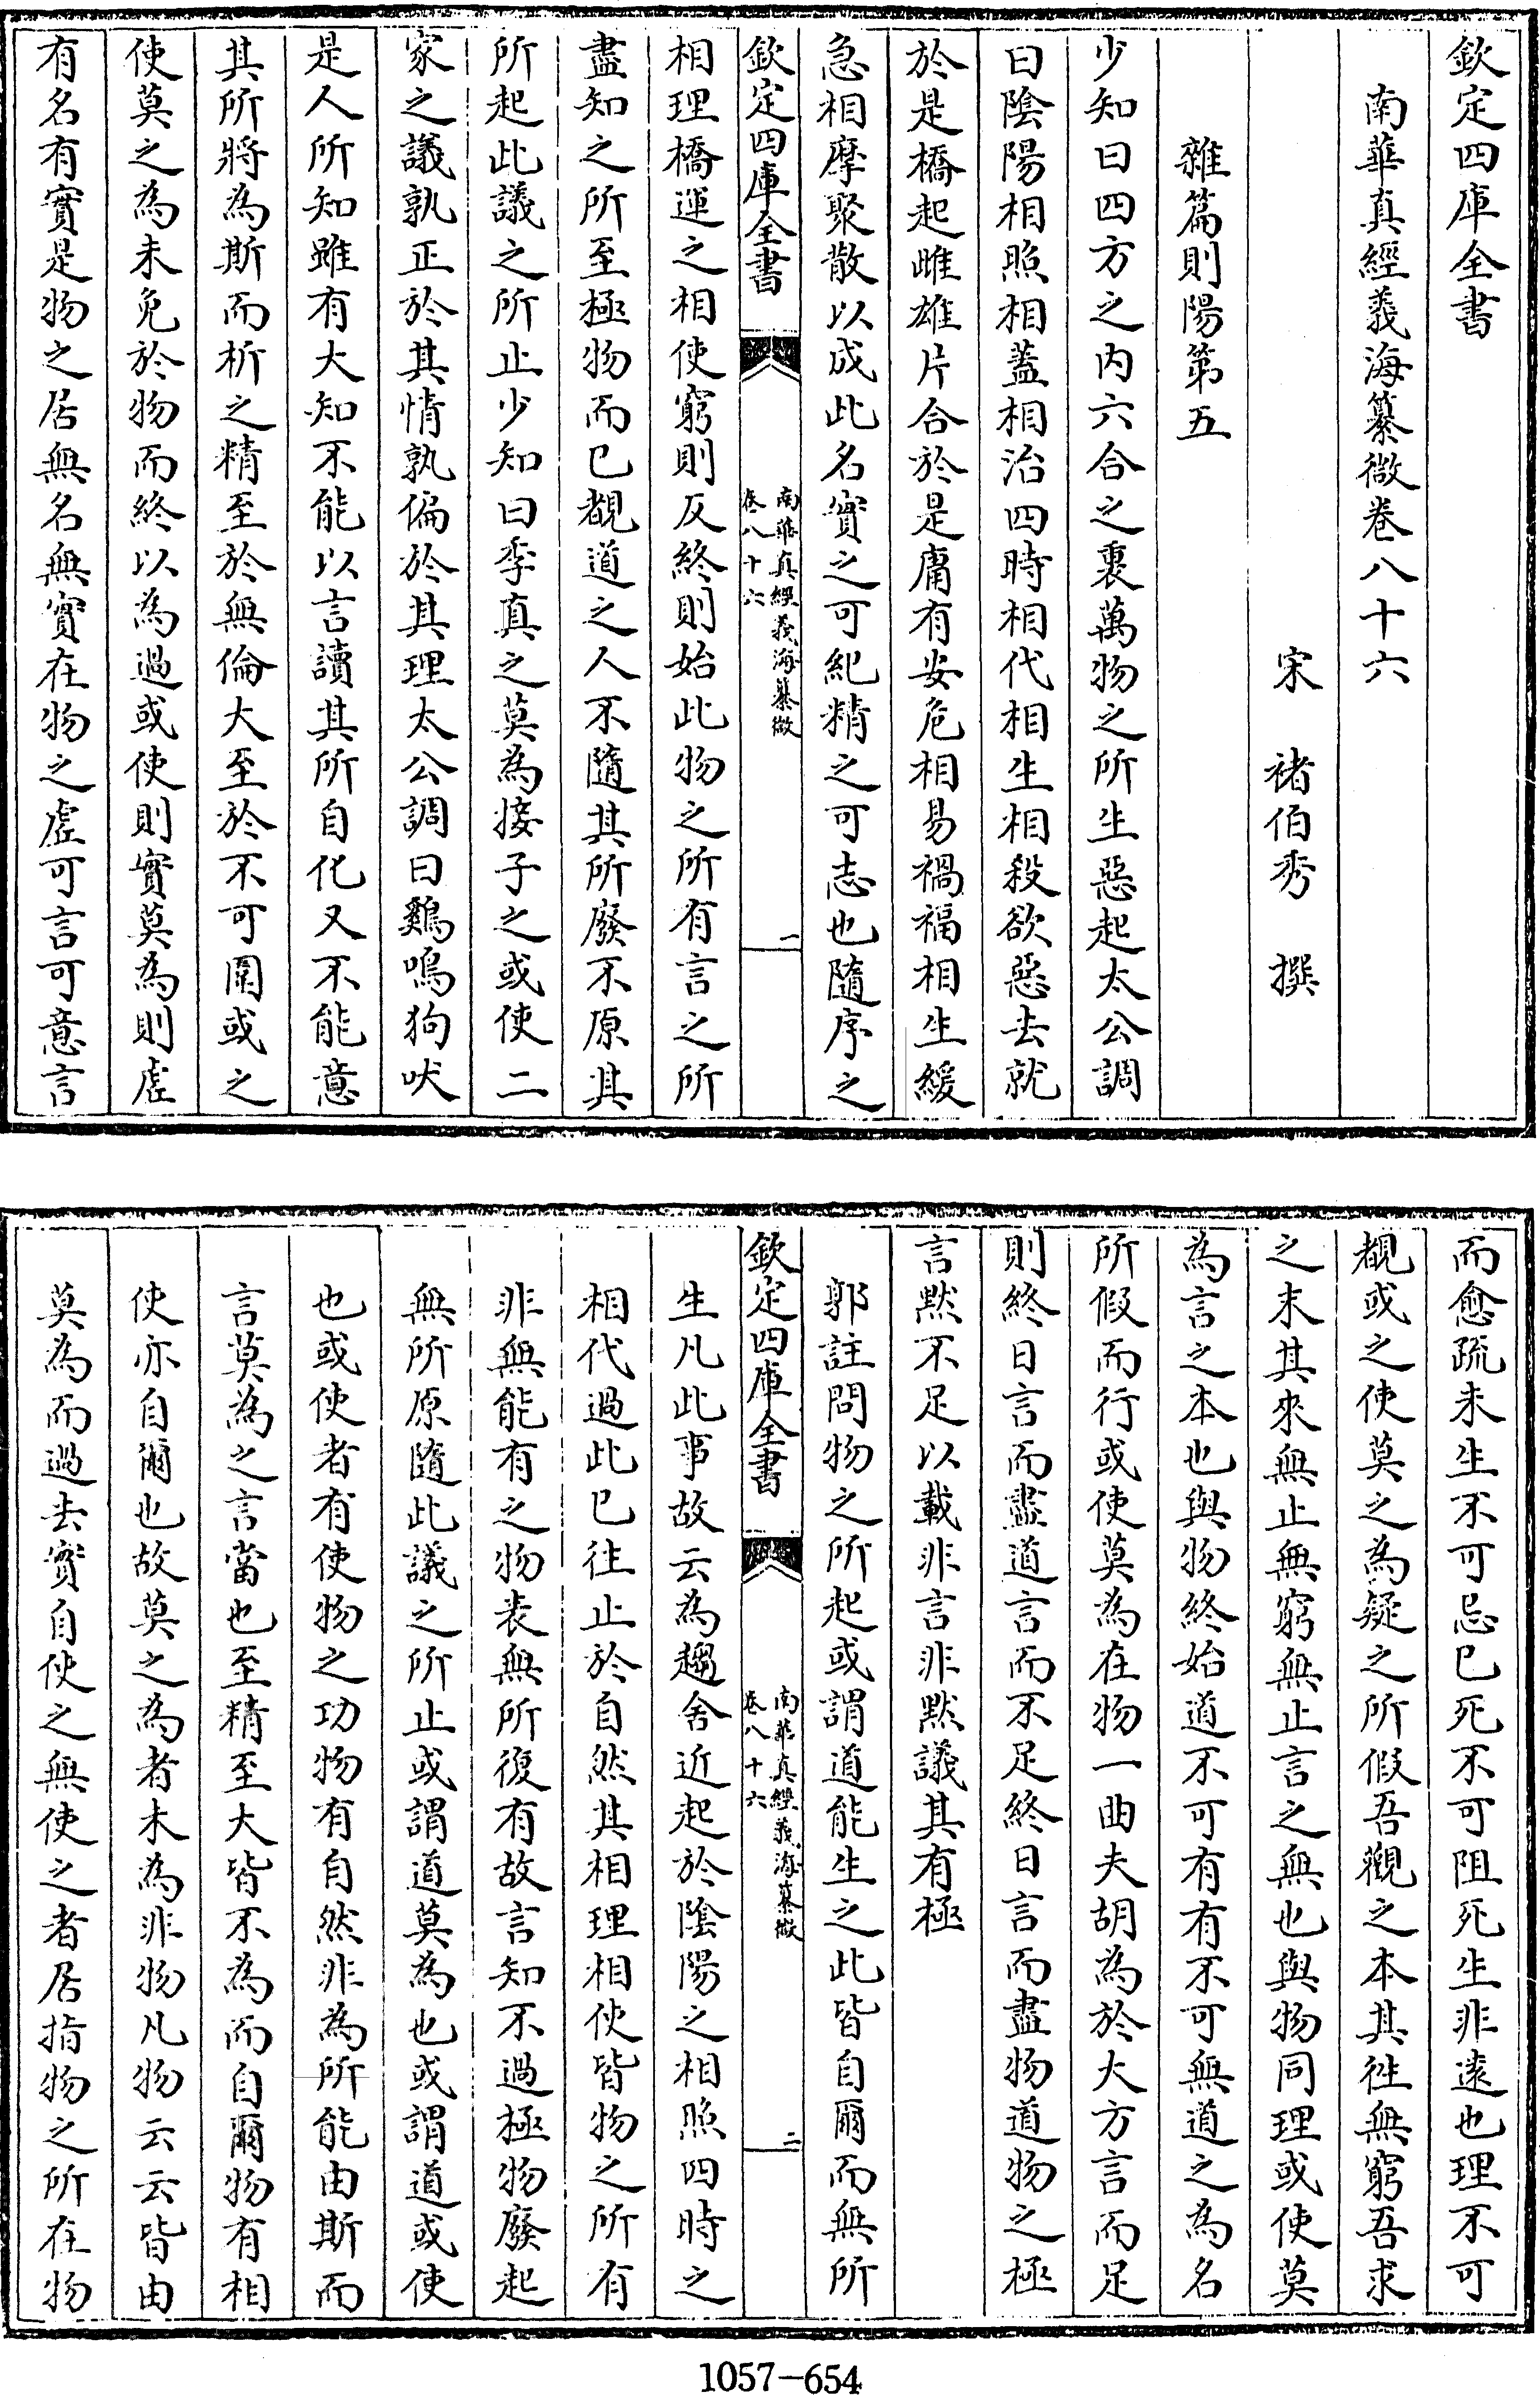 欽定四庫全書
南華真經義海纂微卷八十六
宋　褚伯秀　撰
雜篇則陽第五
少知曰四方之内六合之裏萬物之所生惡起太公調
曰陰陽相照相蓋相治四時相代相生相殺欲惡去就
於是橋起雌雄片合於是庸有安危相易禍福相生緩
急相摩聚散以成此名實之可紀精之可志也隨序之
欽定四庫全書
南華真經義海纂微
卷八十六
一
相理橋運之相使窮則反終則始此物之所有言之所
盡知之所至極物而已覩道之人不隨其所廢不原其
所起此議之所止少知曰季真之莫為接子之或使二
家之議孰正於其情孰偏於其理太公調曰鷄鳴狗吠
是人所知雖有大知不能以言讀其所自化又不能意
其所將為斯而析之精至於無倫大至於不可圍或之
使莫之為未免於物而終以為過或使則實莫為則虛
有名有實是物之居無名無實在物之虛可言可意言
而愈疏未生不可忌已死不可阻死生非遠也理不可
覩或之使莫之為疑之所假吾觀之本其往無窮吾求
之末其來無止無窮無止言之無也與物同理或使莫
為言之本也與物終始道不可有有不可無道之為名
所假而行或使莫為在物一曲夫胡為於大方言而足
則終日言而盡道言而不足終日言而盡物道物之極
言黙不足以載非言非黙議其有極
郭註問物之所起或謂道能生之此皆自爾而無所
欽定四庫全書
南華真經義海纂微
卷八十六
二
生凡此事故云為趨舍近起於陰陽之相照四時之
相代過此已往止於自然其相理相使皆物之所有
非無能有之物表無所復有故言知不過極物廢起
無所原隨此議之所止或謂道莫為也或謂道或使
也或使者有使物之功物有自然非為所能由斯而
言莫為之言當也至精至大皆不為而自爾物有相
使亦自爾也故莫之為者未為非物凡物云云皆由
莫為而過去實自使之無使之者居指物之所在物
1057-654